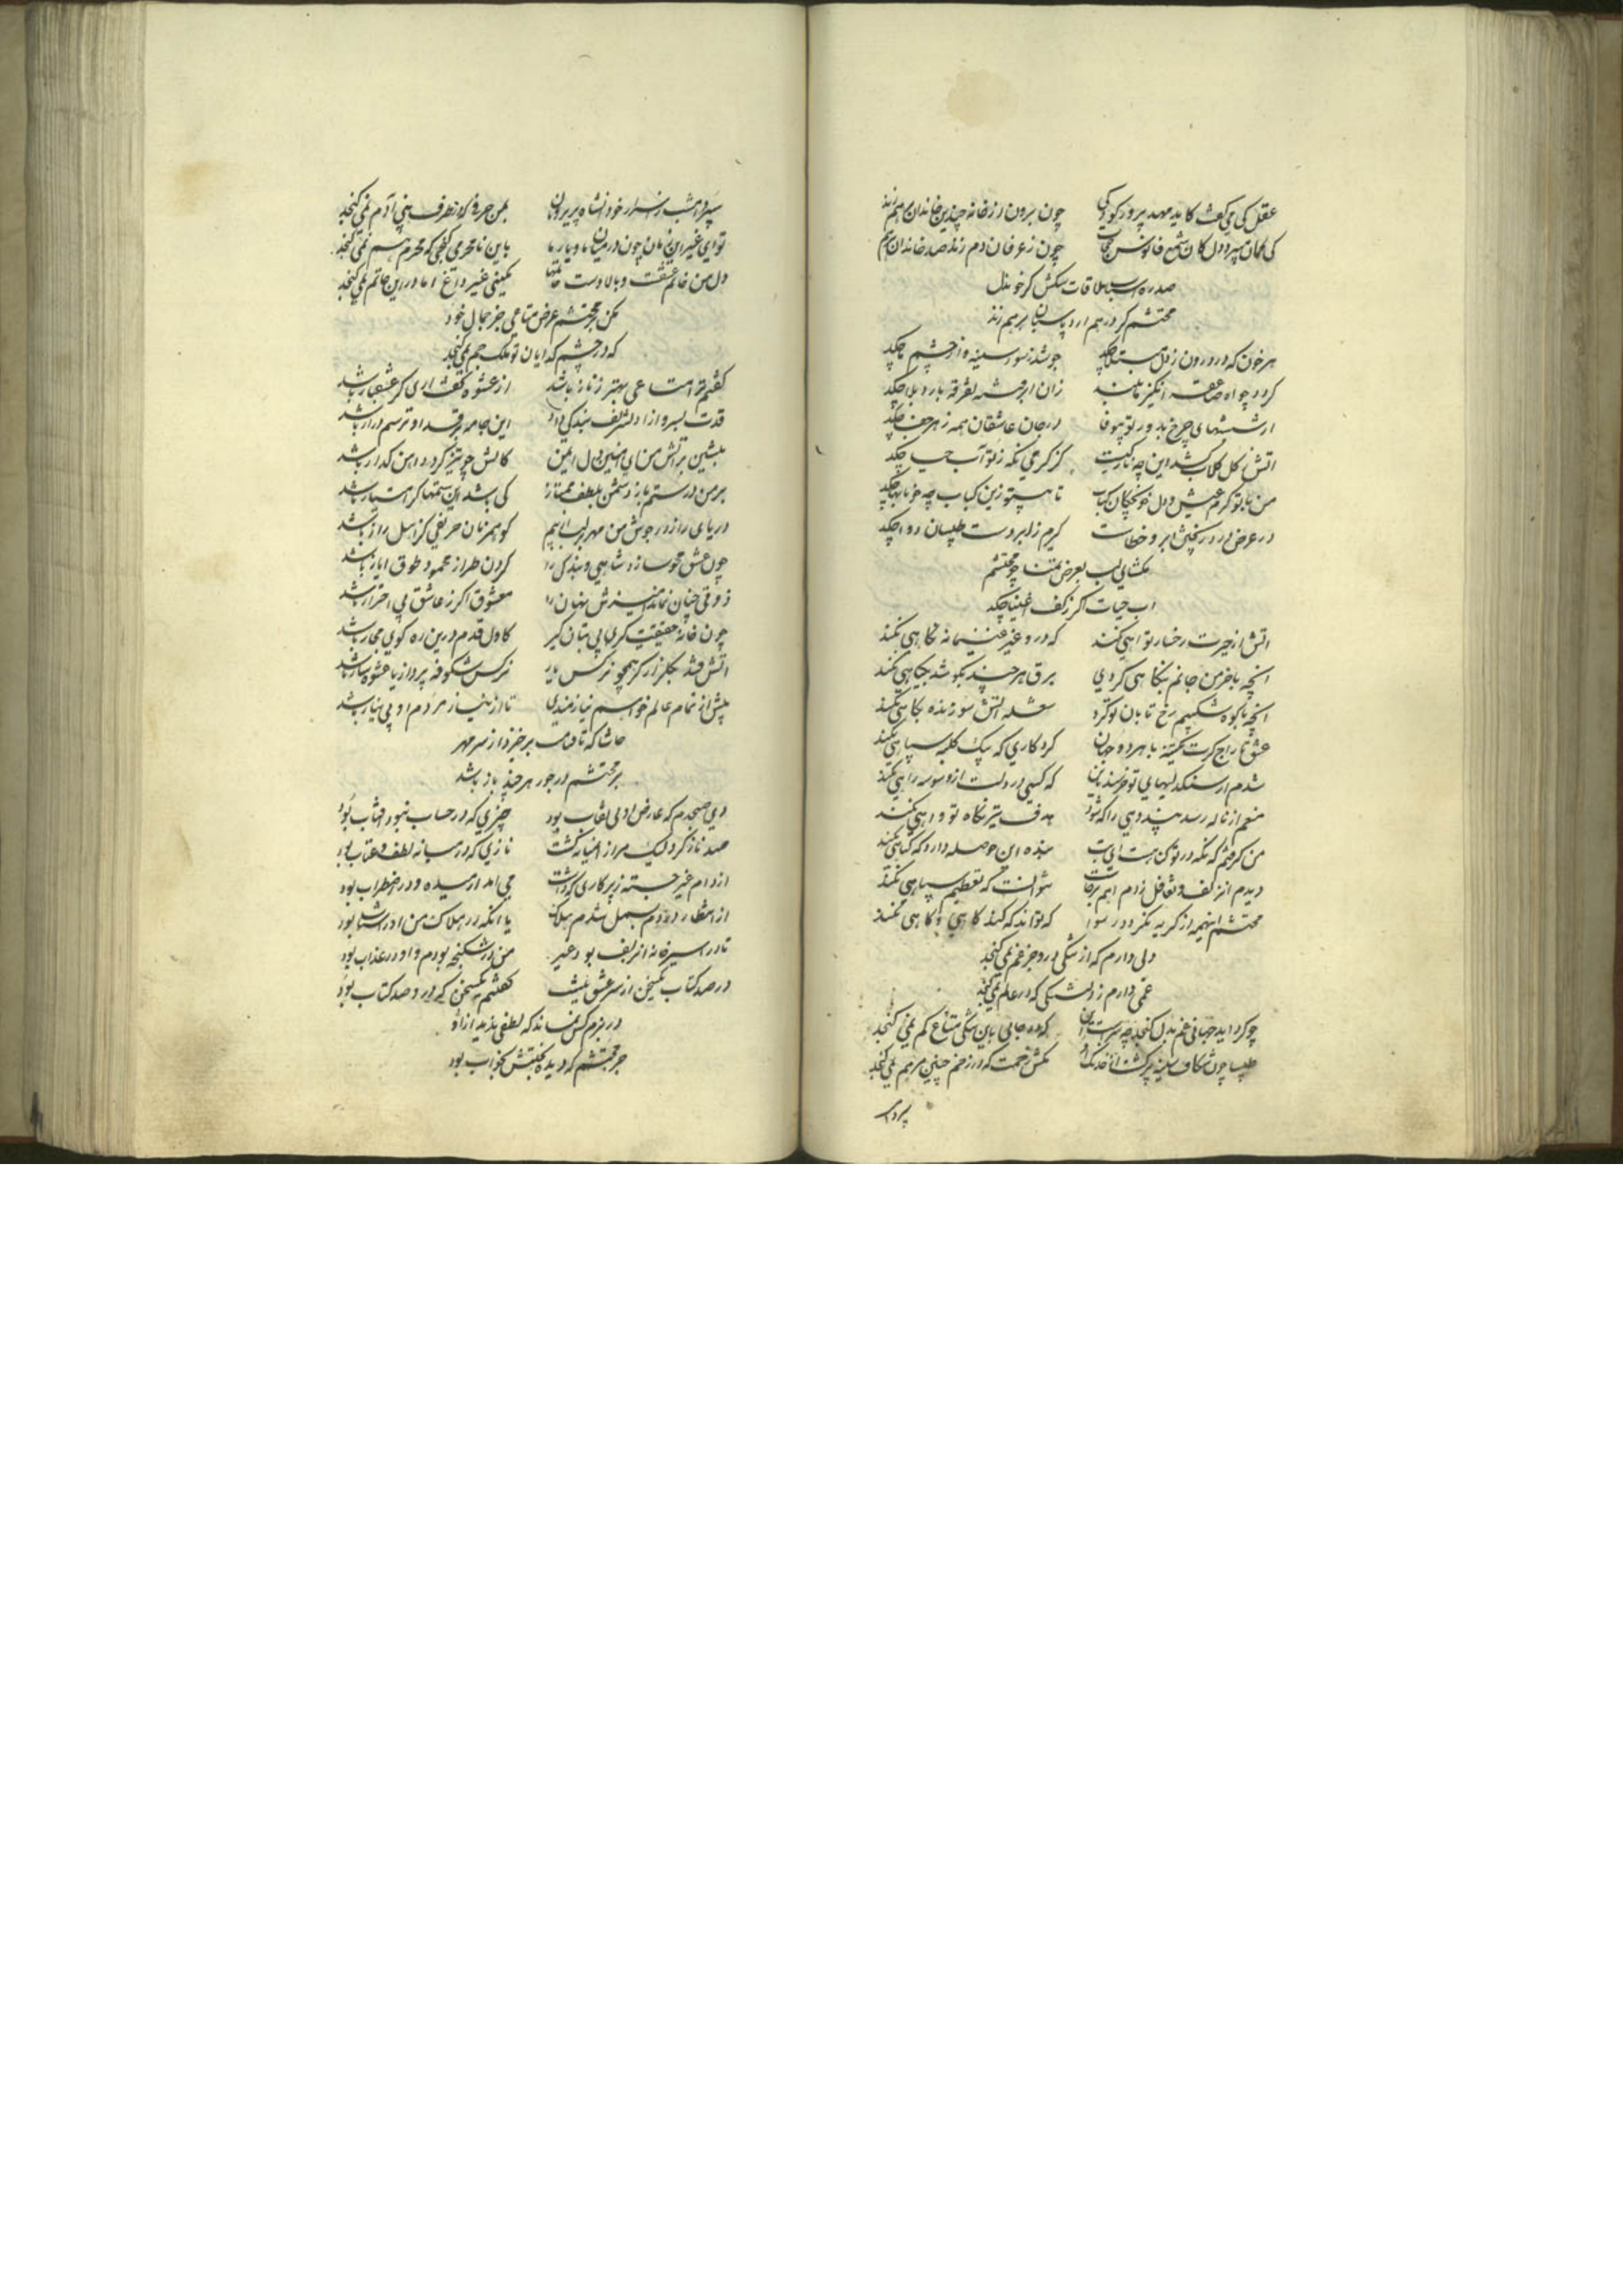 عقل کی می‌گفت کاید مهد پرور کودکی چون برون از خانه چندین خاندان برهم زند
کی گمان میبرد دل کان شمع فانوس حجاب چون ز عرفان دم زند صد خاندان برهم
صد ره اسباب ملاقات سگش گر خون دل
محتشم گرد هم آرد پاسبان برهم زند
هر خون که در درون ز دل مبتلا چکد جوشد ز سوز سینه و از چشم ما چکد
گردد چو آه صاعقه انگیز ما بلند زان ابر فتنه تفرقه بارد بلا چکد
ار شیشهای چرخ بدور تو بیوفا در جان عاشقان همه زهر جفا چکد
آتش ز گل گلاب کشد این چه نازکیست کز گرمی نگه ز تو آب حیا چکد
من با تو گرم عیش و دل خونچکان کباب تا بیتو زین کباب چه خونابها چکد
در عرض درد ریختن آبرو خطاست گیرم ز ابر دست طبیبان دوا چکد
مگشای لب بعرض تمنا چو محتشم
آب حیات اگر ز کف اغنیا چکد
آتش از حیرت رخسار تو آهی نکند که در و غیر غنیمانه نگاهی نکند
آنچه با خرمن جانم بنگاهی کردی برق هر چند بکوشد بگیاهی نکند
آنچه با کوه شکیبم رخ تابان تو کرد شعله آتش سوزنده بکاهی نکند
عشق تاراج گرت بیکتنه با هر دو جهان کرد کاری که بیک کلبه سپاهی نکند
شدم از سنگدلیهای تو خرسند باین که کسی در دلت از وسوسه راهی نکند
منعم از ناله رسد بنده وهی را که شود هدف تیر نگاه تو و آهی نکند
من گرفتم که نگه در تو گناهست ای بت بنده این حوصله دارد که گناهی نکند
محتشم اینهمه از گریه نگردد رسوا که تواند که کند گاهی و گاهی نکند
دلی دارم که از تنگی درو جز غم نمی‌گنجد
غمی دارم ز دلتنگی که در عالم نمی‌گنجد
چو گرد آید جهانی غم بدل گنجد چه سرست این که در جایی باین تنگی متاع کم نمی گنجد
طبیبا چون شکاف سینه پر گشت از خدنگ او مکش زحمت که در زخم چنین مرهم نمی گنجد
سپرد امشب ز اسرار خود آنشاه پریرویان بمن حرفی که در ظرف بنی آدم نمی گنجد
تو ای غیر این زمان چون در میان ما و یار ما باین نامحرمی گنجی که محرم هم نمی گنجد
دل من خاتم عشقست و نگینی غیر داغ اما در این خاتم نمی گنجد
مکن بر محتشم عرض متاعی جز جمال خود
که در چشم گدایان تو ملک جم نمی گنجد
گفتم ترا متاعی بهتر ز ناز باشد از عشوه گفت آری گر عشقباز باشد
قدت بسرو آزاد تشریف بندگی داد این جامه بر قد او ترسم دراز باشد
بنشین بر آتش من ای آهنین دل ایمن کاتش چو تیز گردد آهن گداز باشد
بر من در ستم باز دشمن بلطف ممتاز کی باشد این ستمها گر امتیاز باشد
دریای راز در جوش من مهر بر لب اما بیم کو همزبان حریفی کز اهل راز باشد
چون عشق محو سازد شاهی و بندگی را گردن طراز محمود طوق ایاز باشد
ذوقی چنان نماند آمیزش نهان را معشوق اگر ز عاشق بی احتراز باشد
چون خانه حقیقت گیری پی بتان گیر کاول قدم درین ره کوی مجاز باشد
آتش فتد بگلزار گر همچو نرگس یار نرگس شکوفه پرداز یا عشوه ساز باشد
پیش از تمام عالم خواهم نیازمندی تا از نیاز مردم او بی نیاز باشد
حاشا که تا قیامت برخیزد از سر مهر
بر محتشم در جور هر چند باز باشد
دی صبحدم که عارض او بی نقاب بود چیزی که در حساب نبود آفتاب بود
صد ناز کرد لیک مرا زان میانه کشت نازی که در میانه لطف و عتاب بود
از دام غیر جسته ز پرکاری که داشت می آمد آرمیده و در اضطراب بود
از انتظار در دم بسمل شدم هلاک با آنکه در هلاکت من در شتاب بود
تا در اسیر خانه آن زلف بود غیر من در شکنجه بودم و او در عذاب بود
در صد کتاب یکسخن از سر عشق نیست گفتیم یک سخن که در و صد کتاب بود
در بزم کس نماند که لطفی ندید از او
جز محتشم که دیده بختش بخواب بود